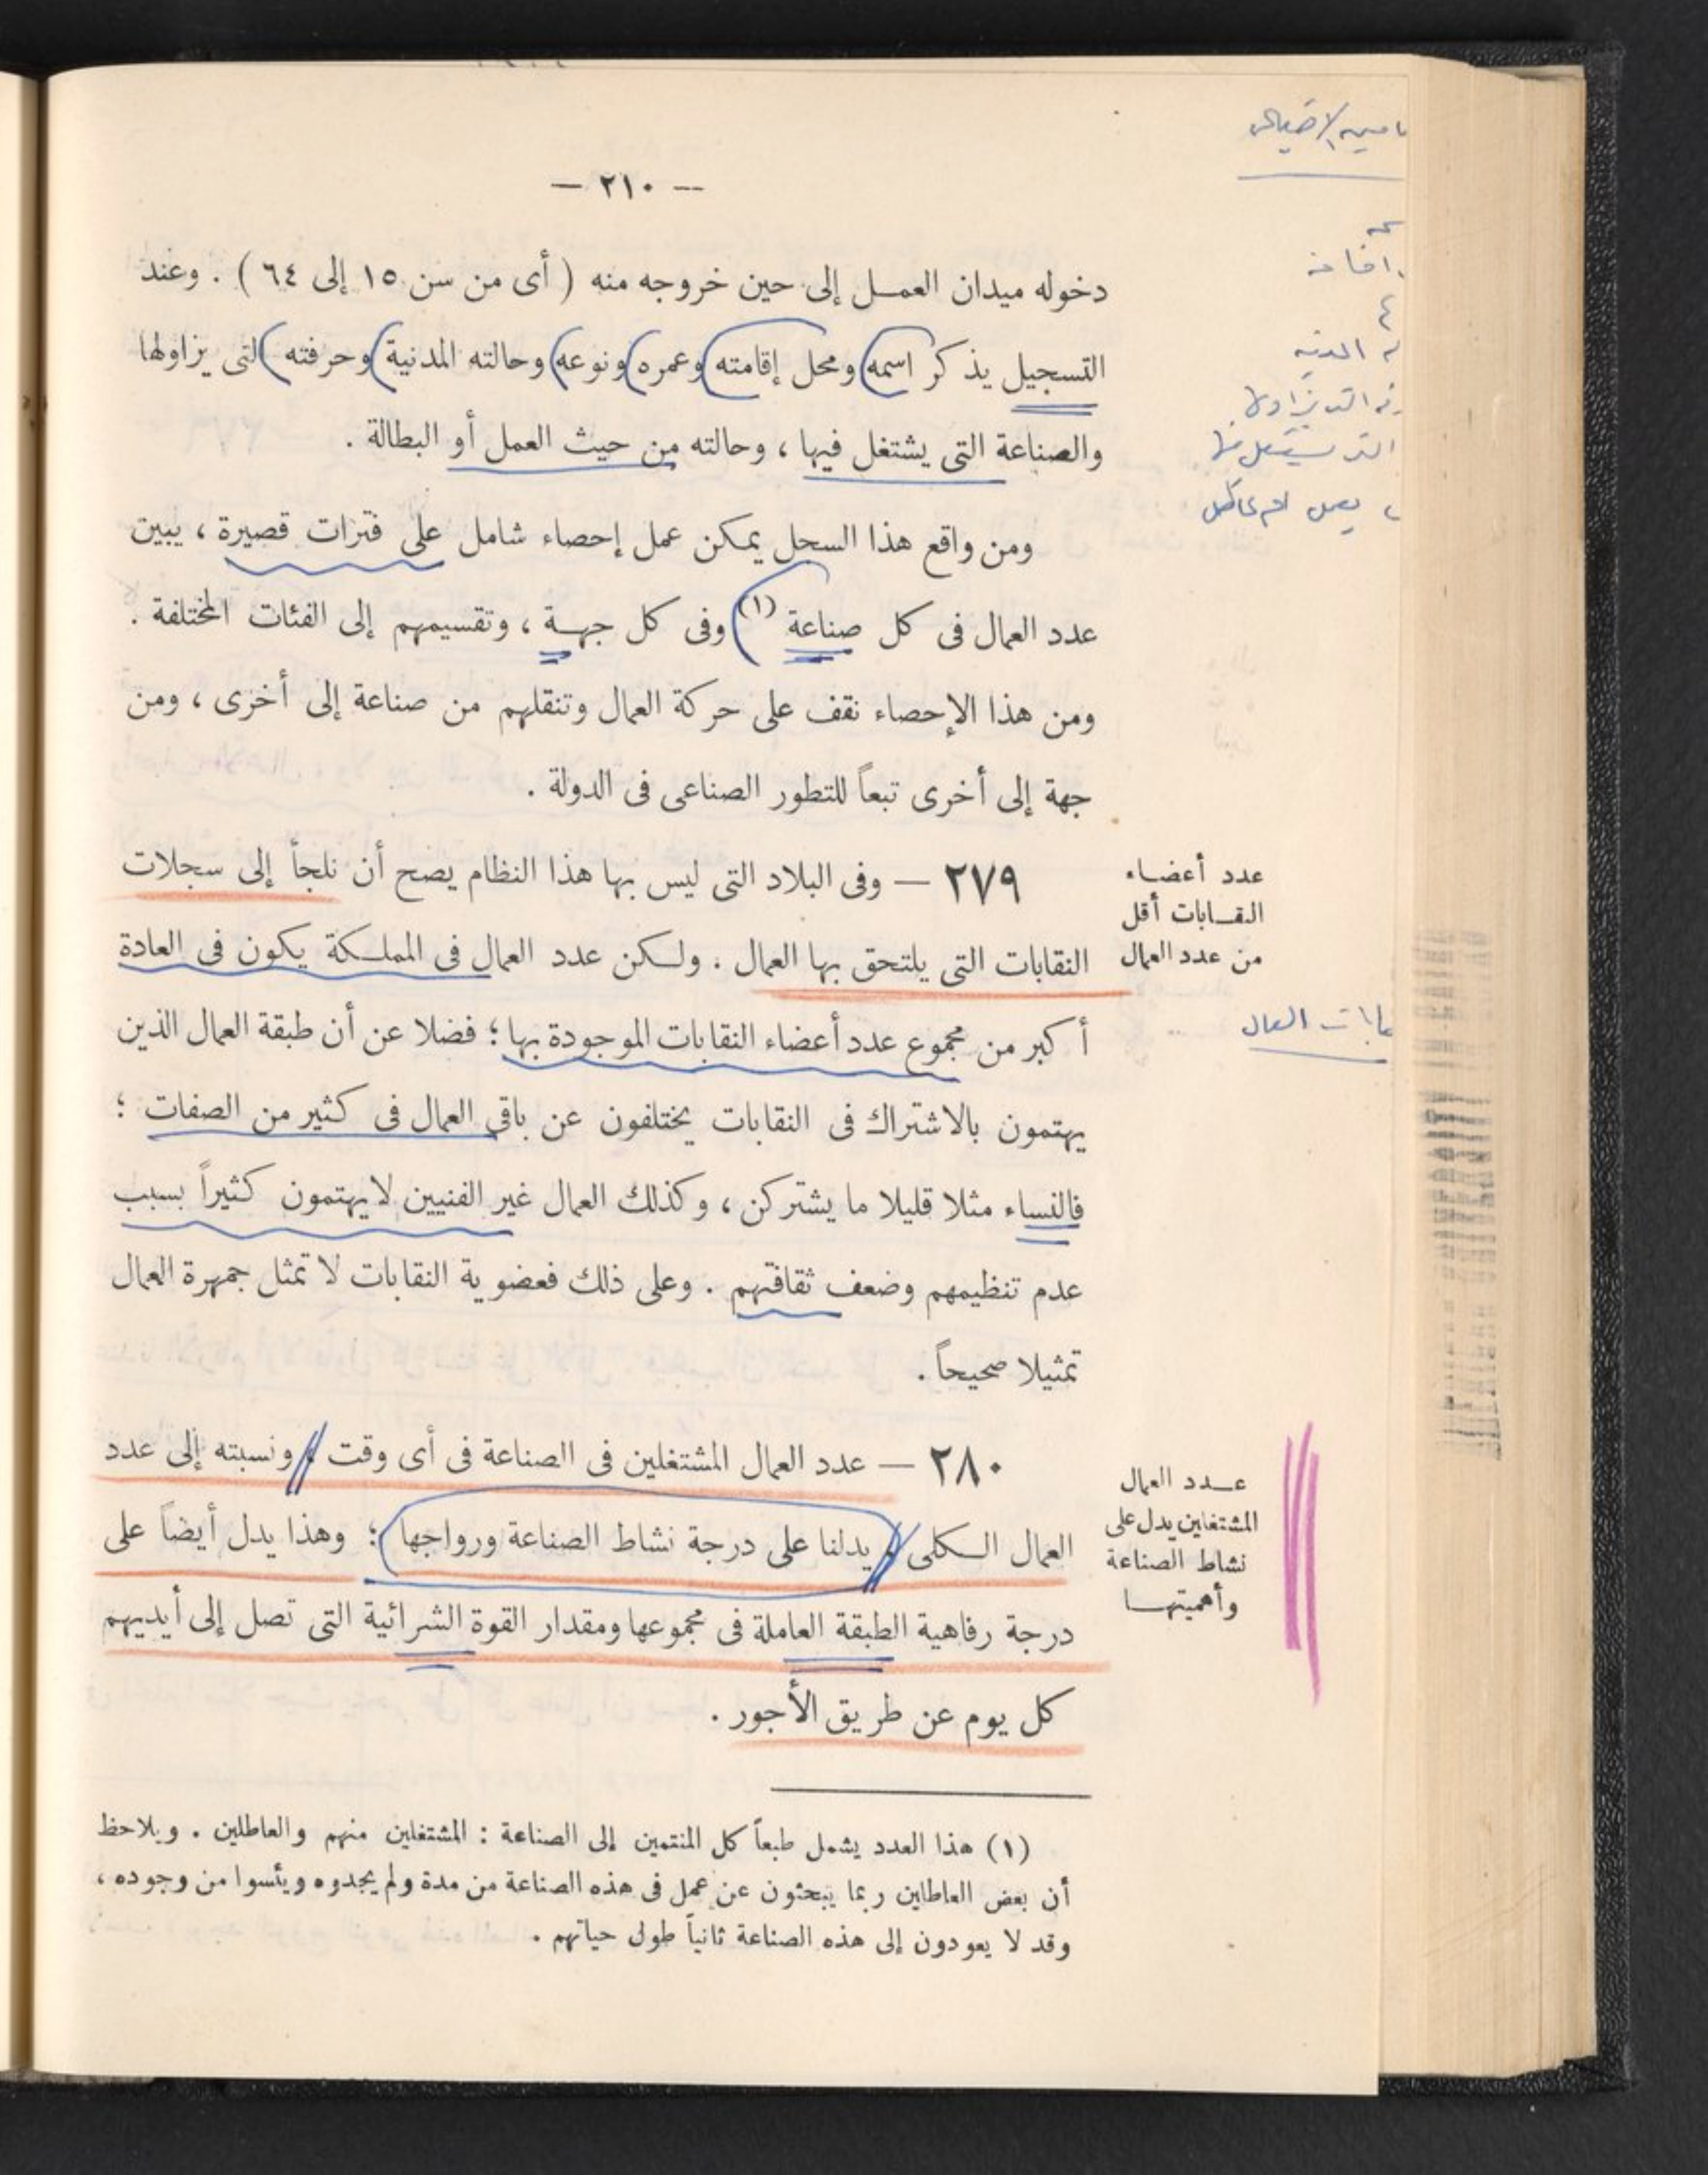 — ٢١٠ —
دخوله ميدان العمل إلى حين خروجه منه ( أى من سن ١٥ إلى ٦٤ ) . وعند
التسجيل يذكر اسمه ومحل إقامته وعمره ونوعه وحالته المدنية وحرفته التى يزاولها
والصناعة التى يشتغل فيها ، وحالته من حيث العمل أو البطالة .
ومن واقع هذا السجل يمكن عمل إحصاء شامل على فترات قصيرة ، يبين
عدد العمال فى كل صناعة (١) وفى كل جهة ، وتقسيمهم إلى الفئات المختلفة .
ومن هذا الإحصاء نقف على حركة العمال وتنقلهم من صناعة إلى أخرى ، ومن
جهة إلى أخرى تبعاً للتطور الصناعى فى الدولة .
عدد أعضاء
النقابات أقل
من عدد العمال
٢٧٩ — وفى البلاد التى ليس بها هذا النظام يصح أن نلجأ إلى سجلات
النقابات التى يلتحق بها العمال . ولكن عدد العمال فى المملكة يكون فى العادة
أكبر من مجموع عدد أعضاء النقابات الموجودة بها ؛ فضلا عن أن طبقة العمال الذين
يهتمون بالاشتراك فى النقابات يختلفون عن باقى العمال فى كثير من الصفات ؛
فالنساء مثلا قليلا ما يشتركن ، وكذلك العمال غير الفنيين لا يهتمون كثيراً بسبب
عدم تنظيمهم وضعف ثقافتهم . وعلى ذلك فعضوية النقابات لا تمثل جمهرة العمال
تمثيلا صحيحاً .
عدد العمال
المشتغلين يدل على
نشاط الصناعة
وأهميتها
٢٨٠ — عدد العمال المشتغلين فى الصناعة فى أى وقت ، ونسبته إلى عدد
العمال الكلى ، يدلنا على درجة نشاط الصناعة ورواجها ؛ وهذا يدل أيضاً على
درجة رفاهية الطبقة العاملة فى مجموعها ومقدار القوة الشرائية التى تصل إلى أيديهم
كل يوم عن طريق الأجور .
(١) هذا العدد يشمل طبعاً كل المنتمين إلى الصناعة : المشتغلين منهم والعاطلين . ويلاحظ
أن بعض العاطلين ربما يبحثون عن عمل فى هذه الصناعة من مدة ولم يجدوه ويئسوا من وجوده ،
وقد لا يعودون إلى هذه الصناعة ثانياً طول حياتهم .